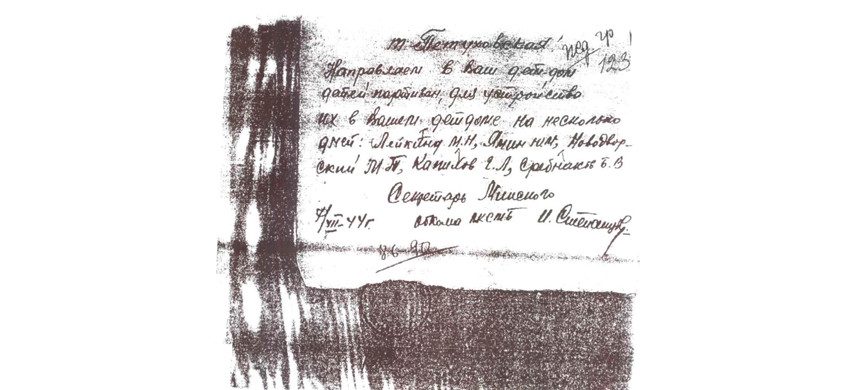 т. Петуховская!
пед гр
123
Направляем в Ваш детдом
детей партизан, для устройство
их в Вашем детдоме на несколько
дней: Лейкинд М.Н, Ямин Н.М, Новодвор-
ский М.П, Капилов Г.Л,
Секретарь Минского
обкома лксмб И.
7/VII-44г.